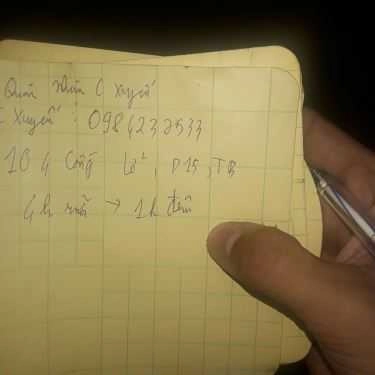 Quán Nhân C Xuyến
C Xuyến : 0984232533
10 4 Cống Lở, P15, TB
4h rưỡi → 1h đêm